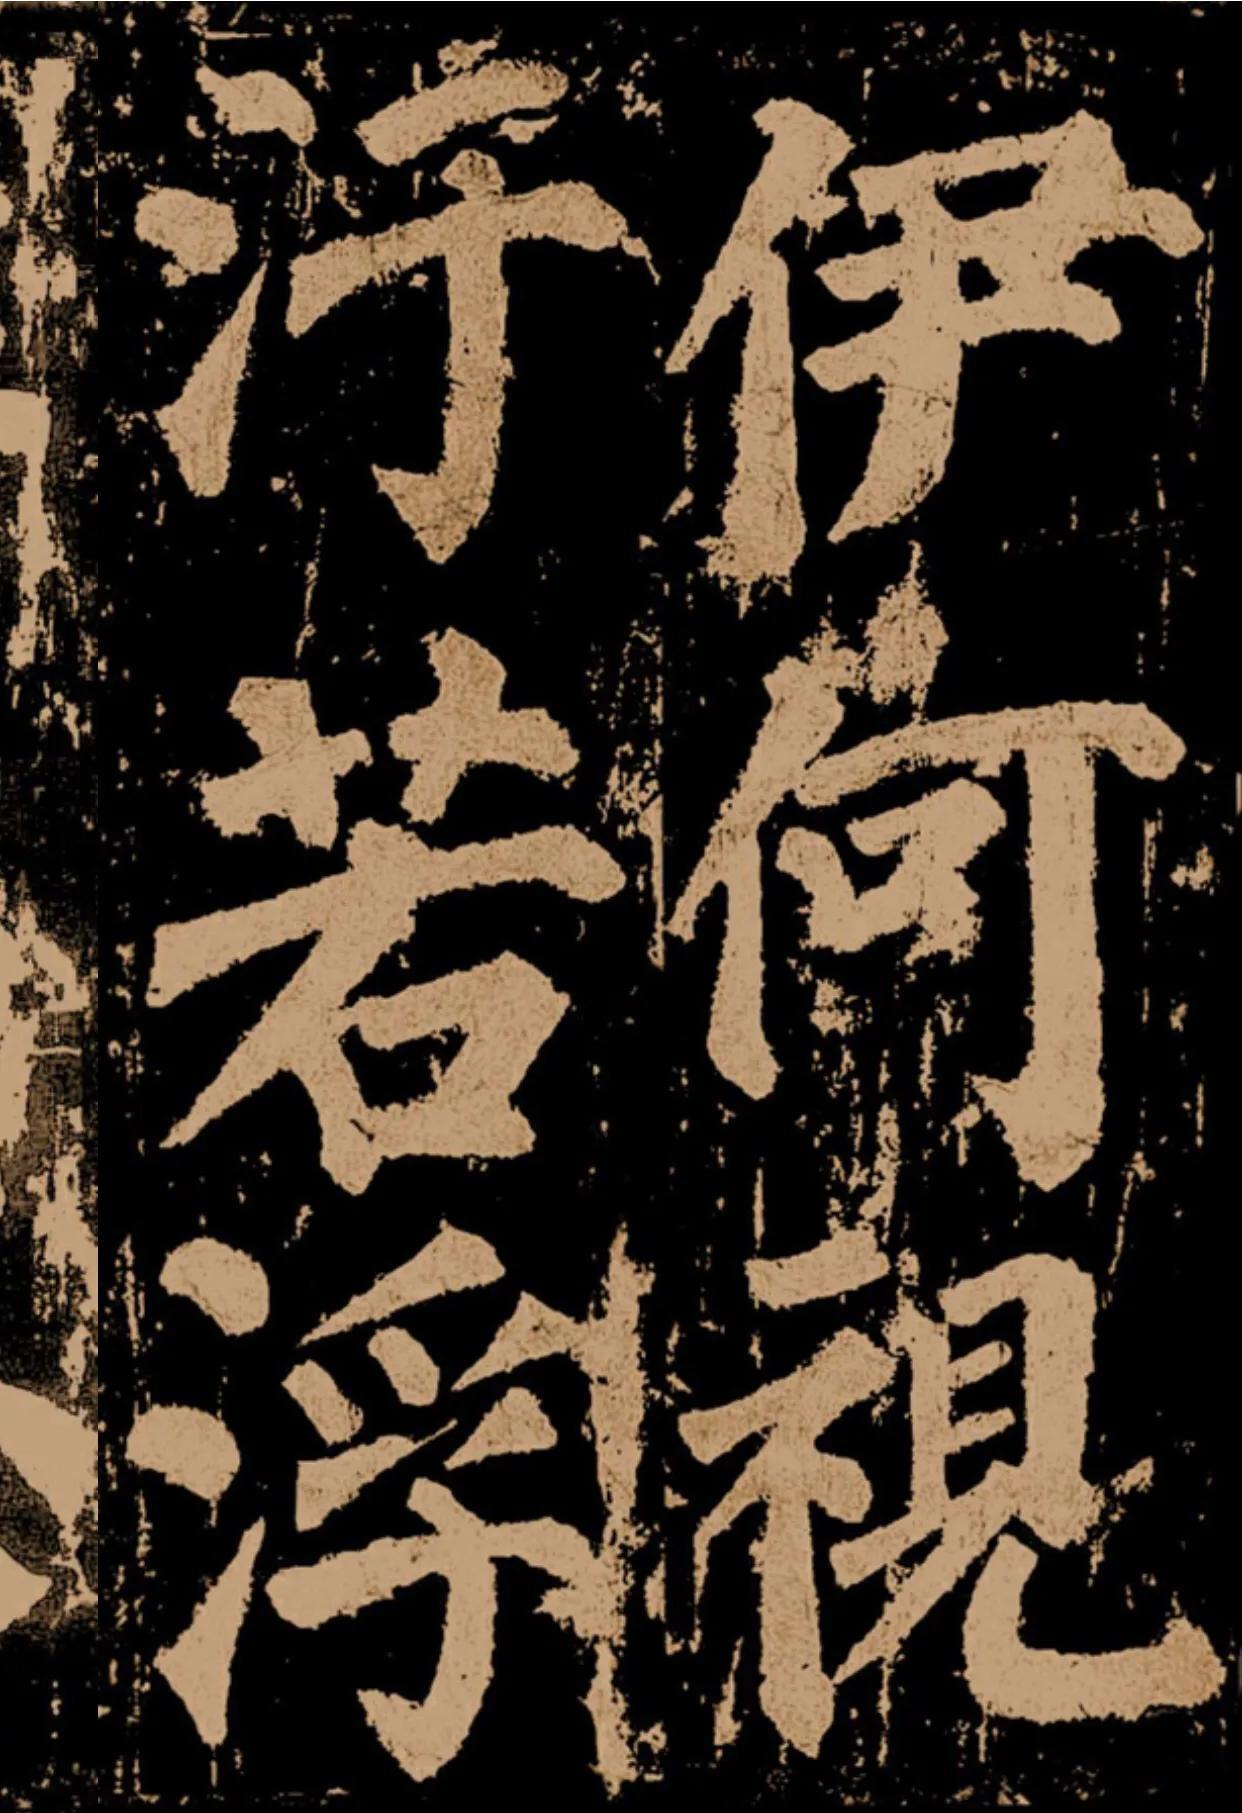 伊何視
汙若浮